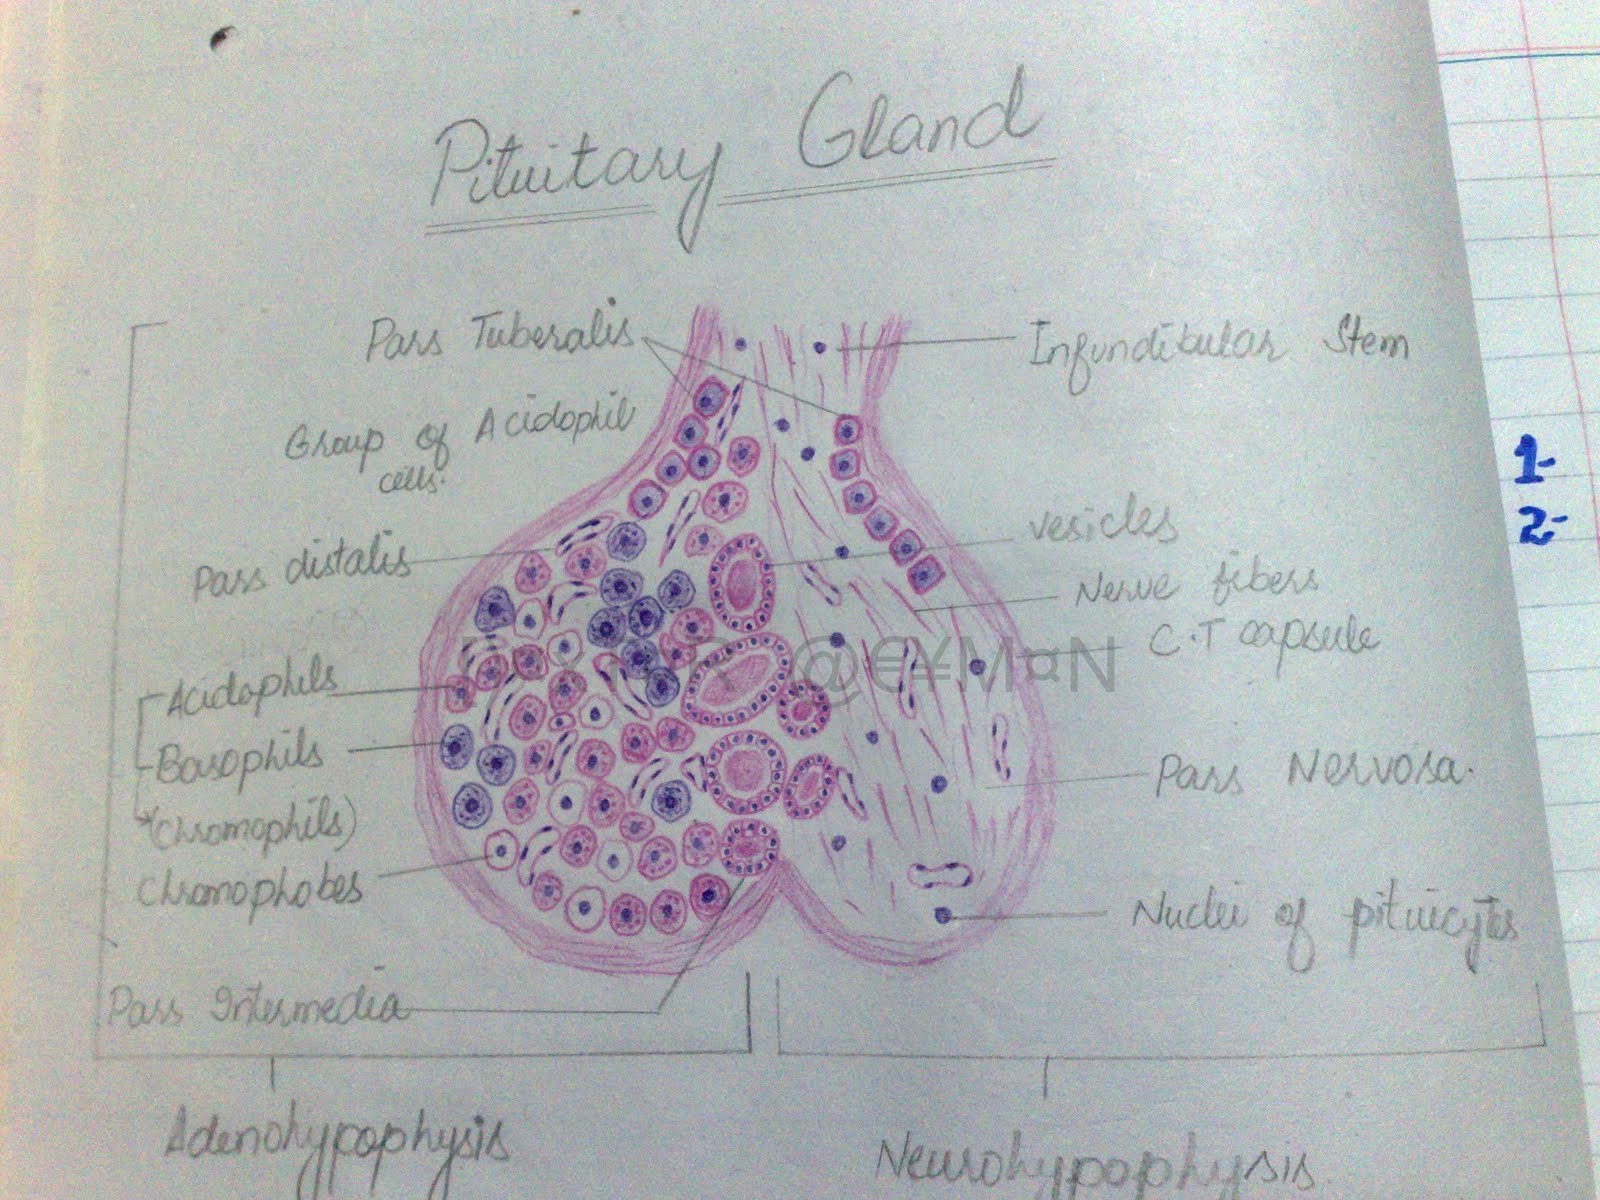 Pituitary Gland
Pars Tuberalis
Infundibular Stem
Group of Acidophil
cells.
1-
2-
vesicles
Pars distalis
Nerve fibers
C.T capsule
@€¥M¤N
Acidophils
Basophils
Pars Nervosa.
(Chromophils)
Chromophobes
Nuclei of pituicytes
Pars Intermedia
Adenohypophysis
Neurohypophysis